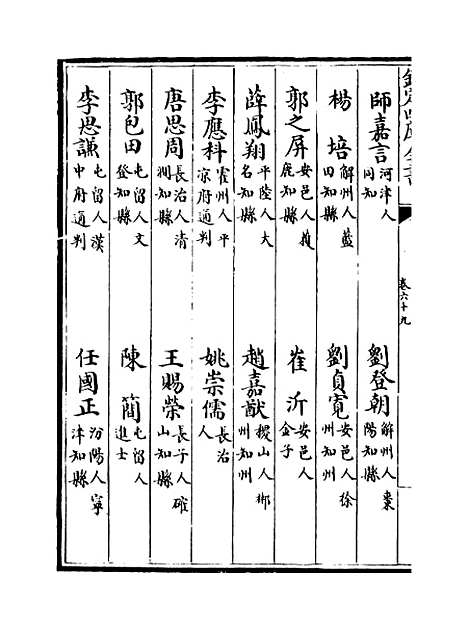 欽定四庫全書
卷六十九
師嘉言 河津人同知 劉登朝 解州人棗陽知縣
楊培 解州人藍田知縣 劉貞寬 安邑人徐州知州
郭之屏 安邑人獲鹿知縣 崔沂 安邑人金子
薛鳳翔 平陸人大名知縣 趙嘉猷 稷山人郴州知州
李應科 霍州人平涼府通判 姚崇儒 長治人
唐思周 長治人清澗知縣 王賜榮 長子人確山知縣
郭包田 屯留人文登知縣 陳蕳 屯留人進士
李思謙 屯留人漢中府通判 任國正 汾陽人寧津知縣